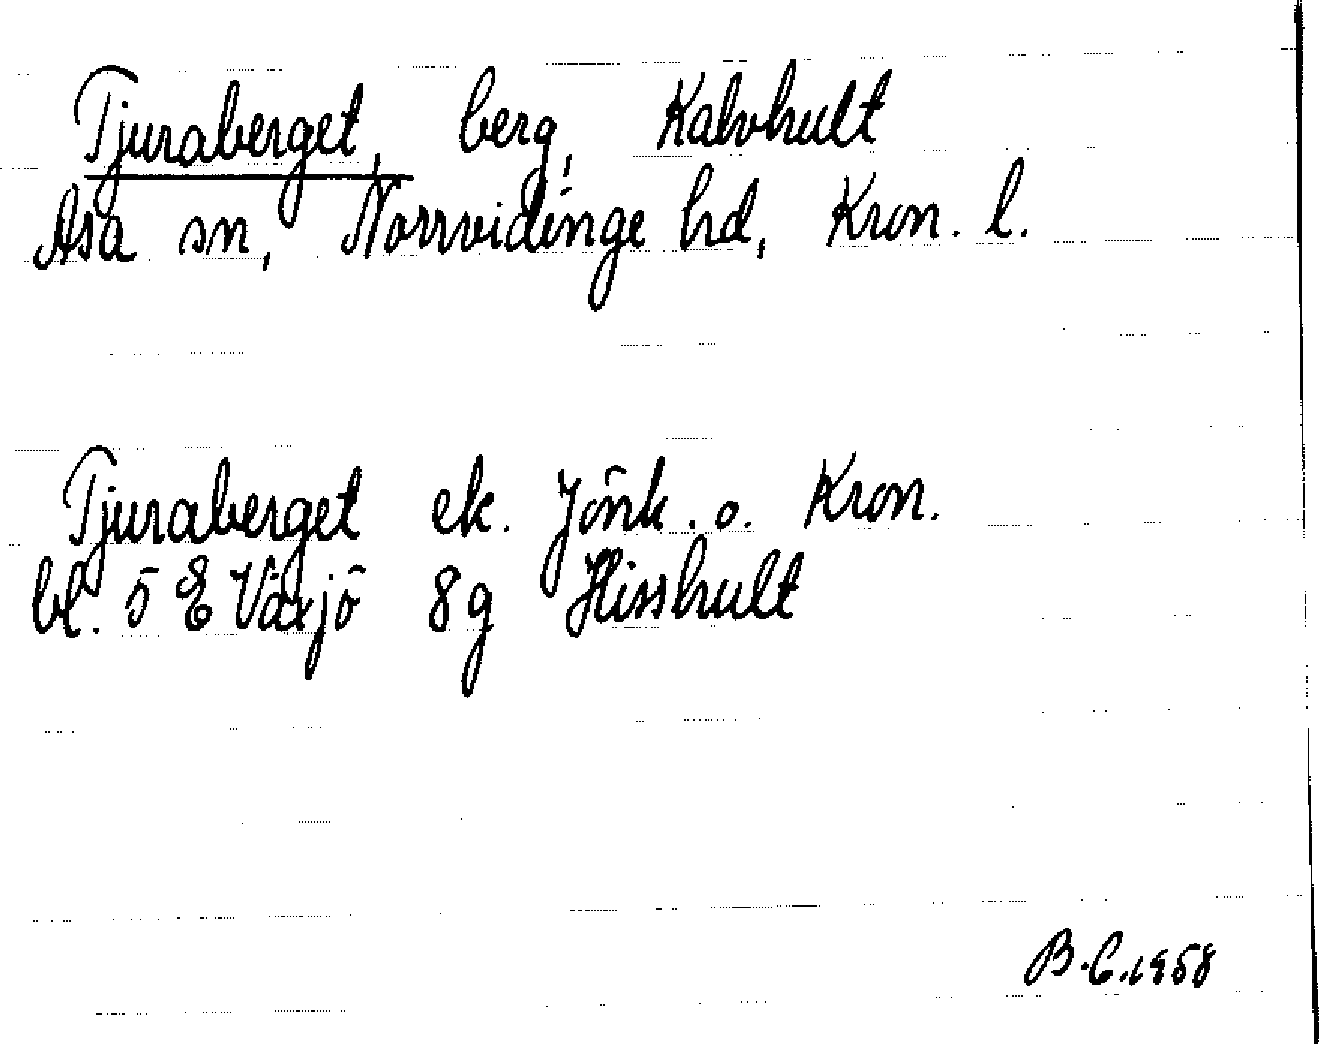 Tjuraberget, berg, Kalvhult
Asa sn, Norrvidinge hd, Kron. l.
Tjuraberget ek. Jönk. o. Kron.
bl. 5 E Växjö 8g Hisshult
B.C.1958